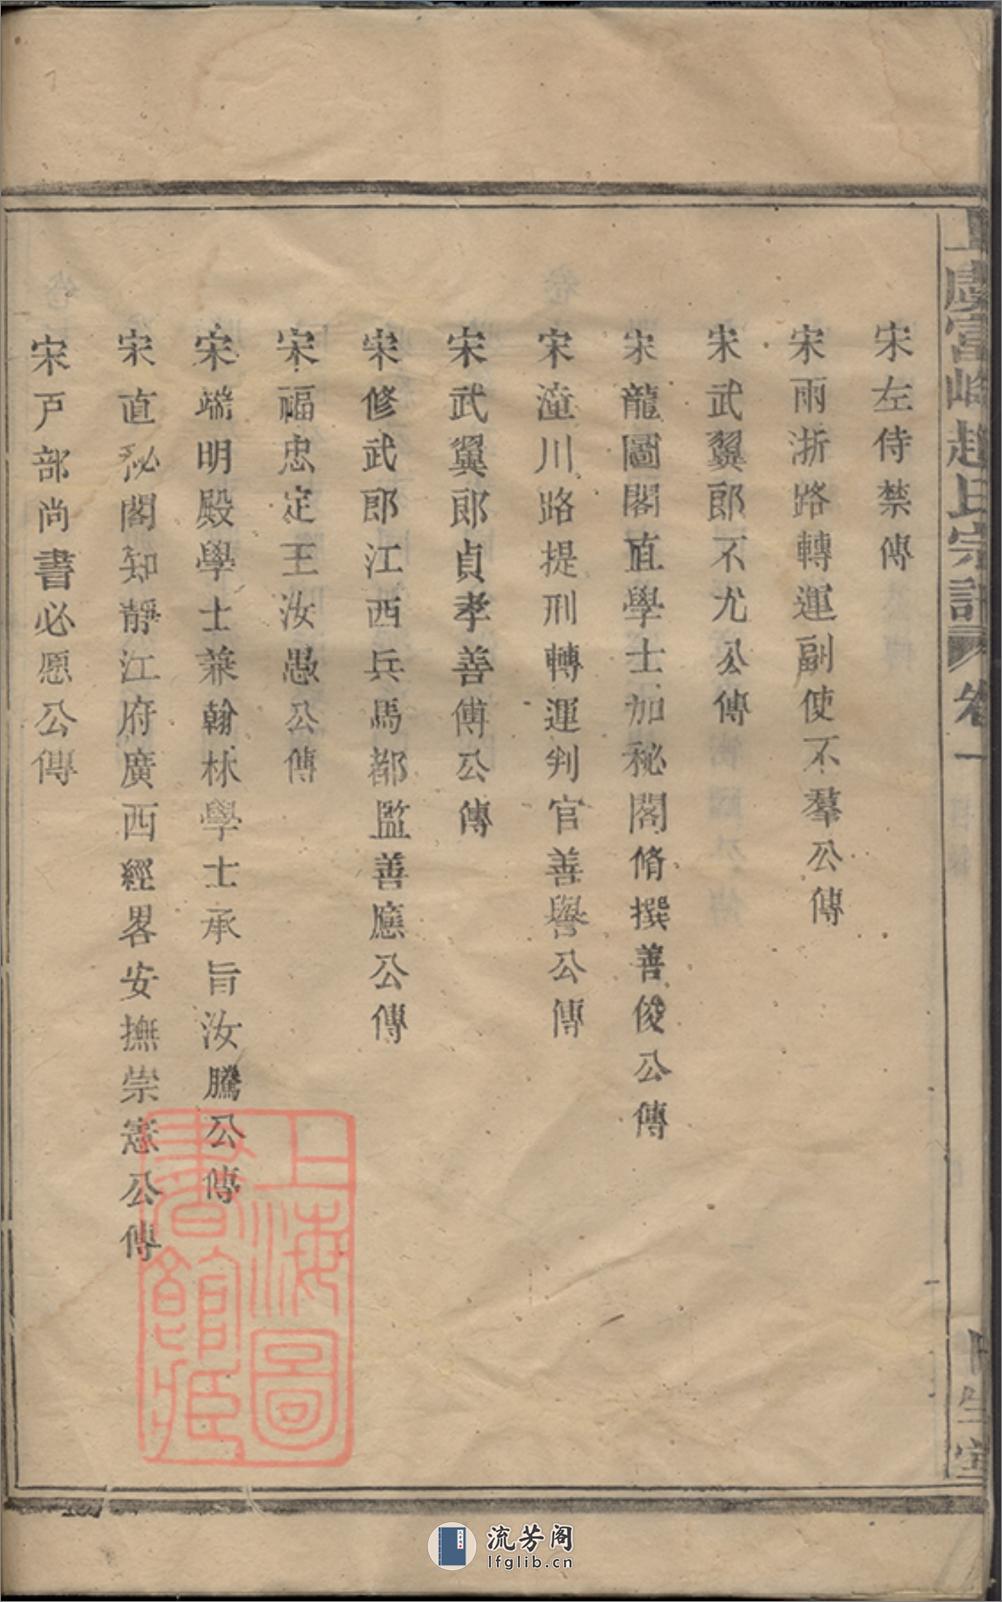 上虞富峰趙氏宗譜 卷一
宋左侍禁傳
宋兩浙路轉運副使不羣公傳
宋武翼郎不尤公傳
宋龍圖閣直學士加秘閣脩撰善俊公傳
宋潼川路提刑轉運判官善譽公傳
宋武翼郎貞孝善傅公傳
宋修武郎江西兵馬都監善應公傳
宋福忠定王汝愚公傳
宋端明殿學士兼翰林學士承旨汝騰公傳
宋直秘閣知靜江府廣西經畧安撫崇憲公傳
宋戸部尚書必愿公傳
上海圖書館藏
流芳阁
lfglib.cn